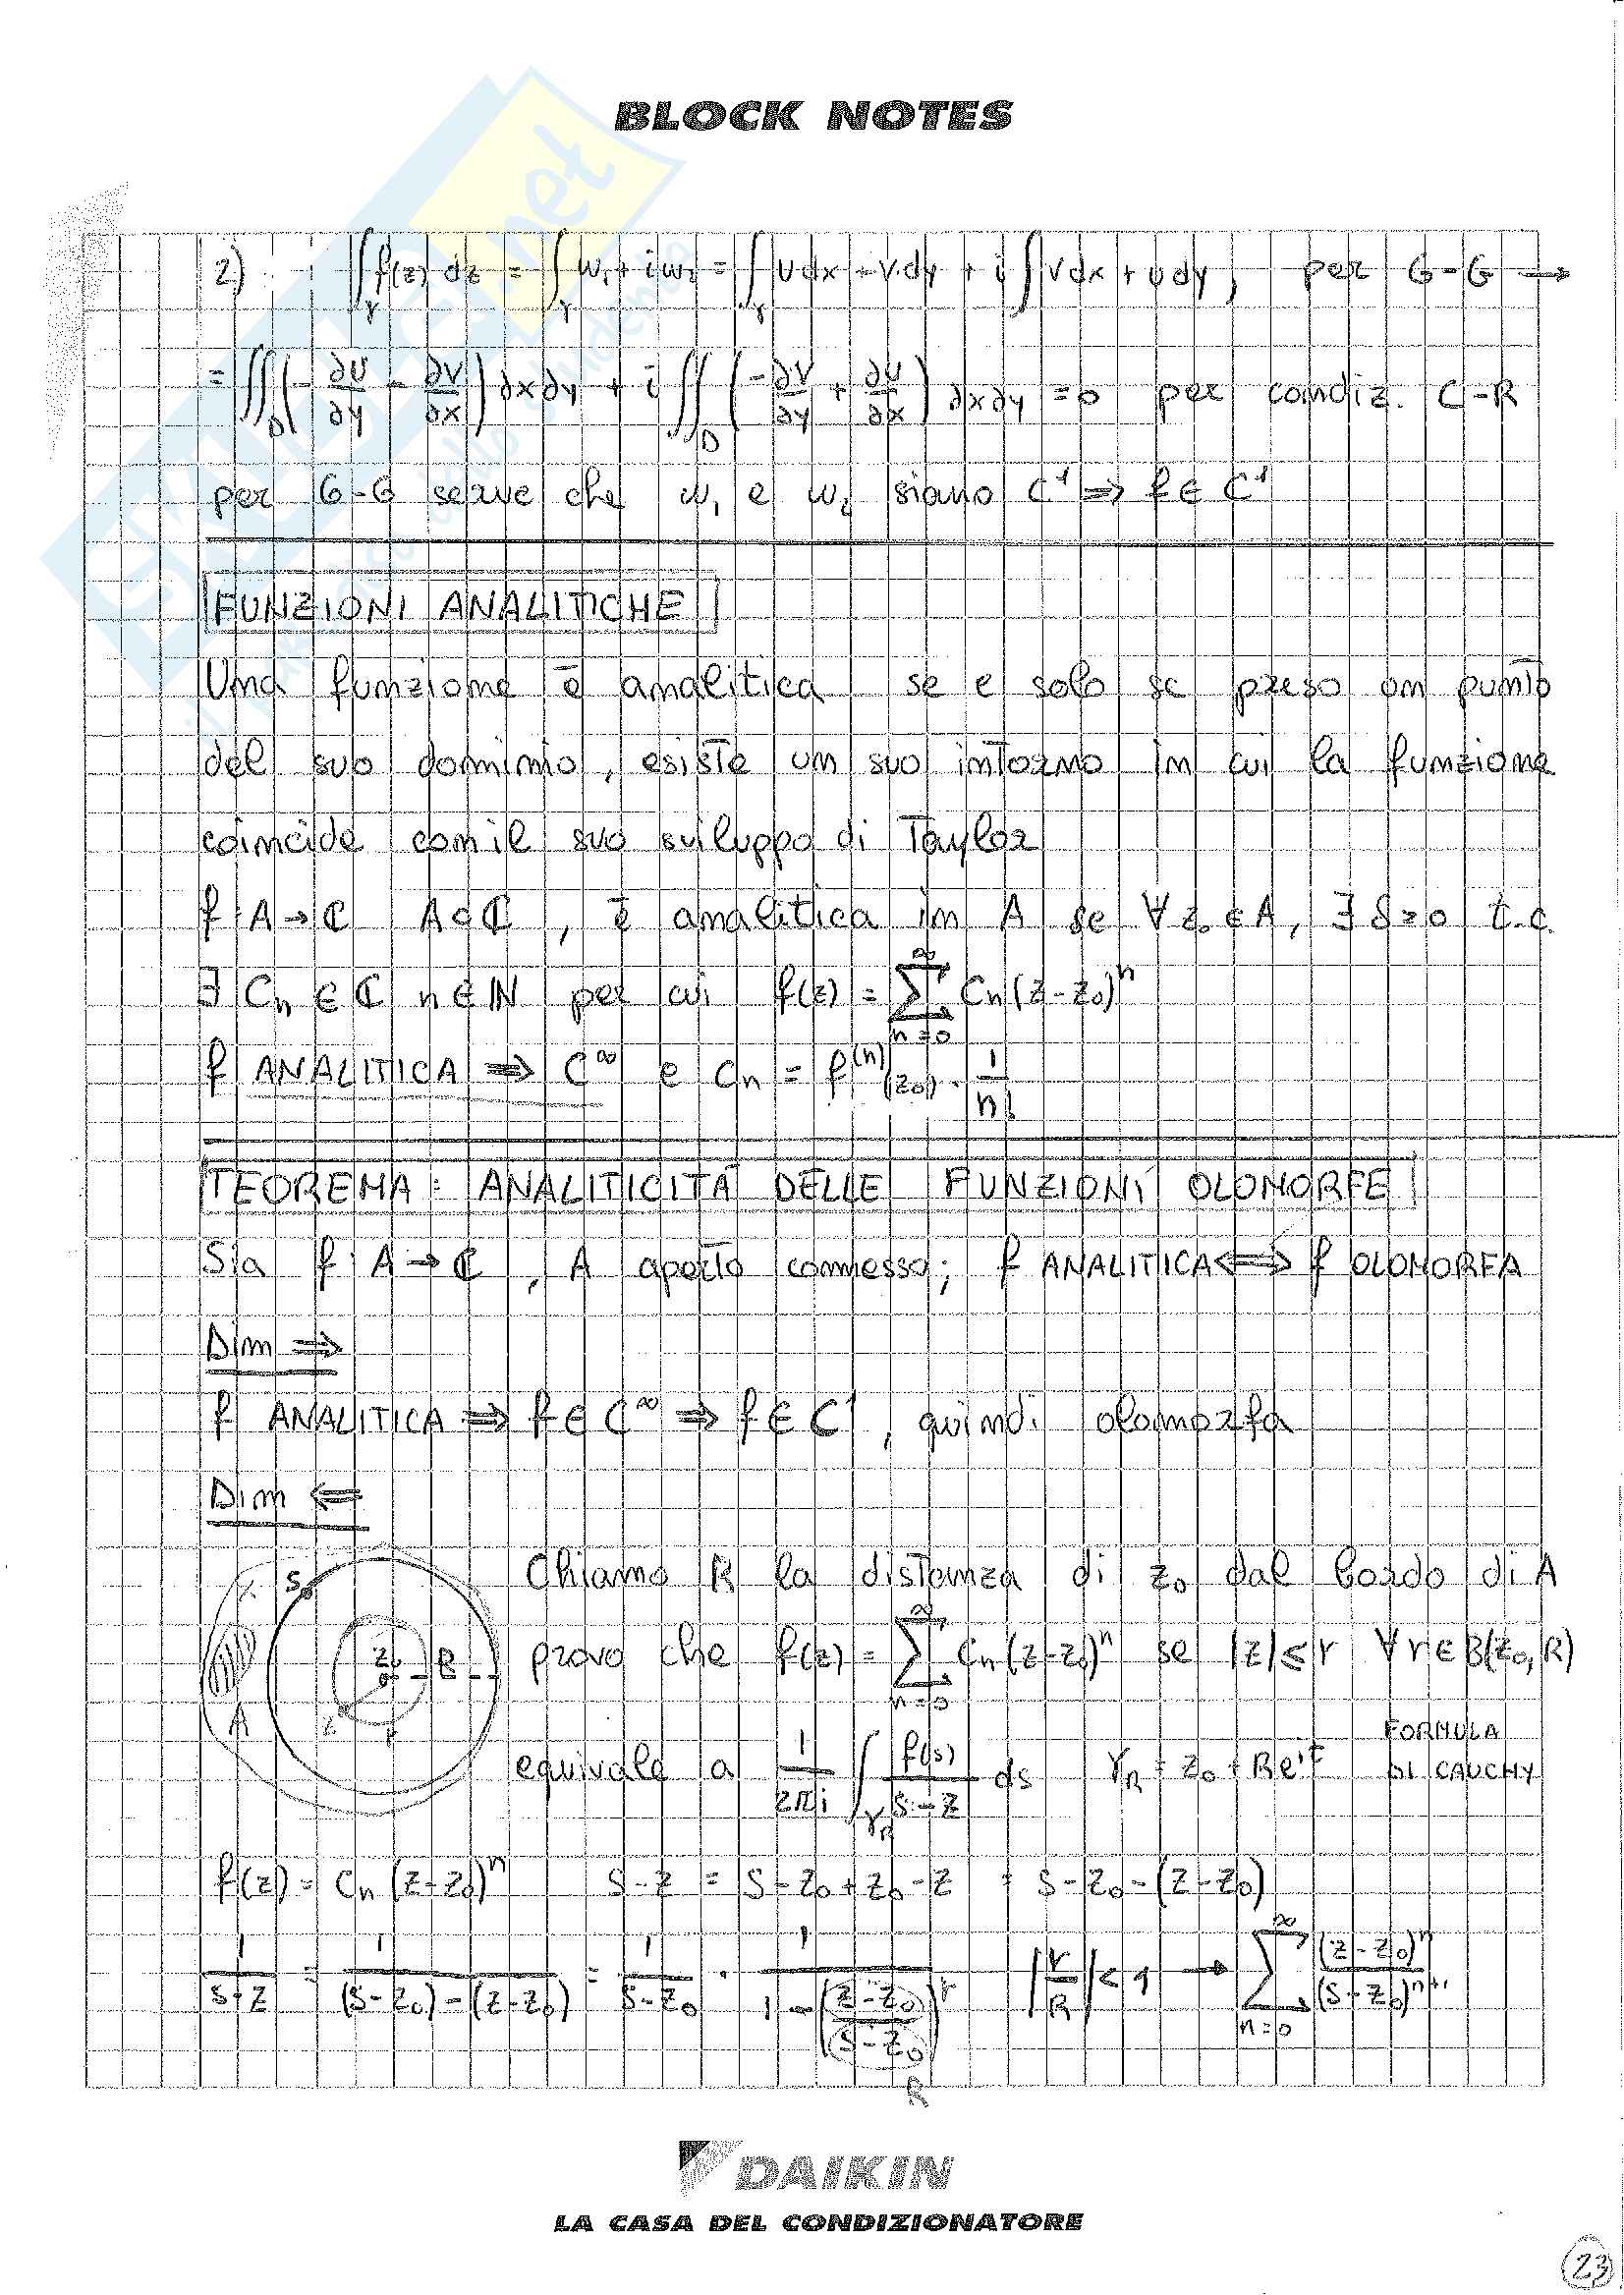 BLOCK NOTES
2) ∫γ f(z) dz = ∫γ w₁ + i w₂ = ∫γ u dx - v dy + i ∫ v dx + u dy, per G-G →
= ∬D (-∂u/∂y - ∂v/∂x) ∂x∂y + i ∬D (-∂v/∂y + ∂u/∂x) ∂x∂y = 0 per condiz. C-R
per G-G serve che w₁ e w₂ siano C¹ ⇒ f ∈ C¹
FUNZIONI ANALITICHE
Una funzione è analitica se e solo se preso un punto
del suo dominio, esiste un suo intorno in cui la funzione
coincide con il suo sviluppo di Taylor
f: A → ℂ A⊂ℂ, è analitica in A se ∀z₀∈A, ∃ δ>0 t.c.
∃ Cn ∈ ℂ n∈ℕ per cui f(z) = ∑_{n=0}^{∞} Cn(z-z₀)ⁿ
f ANALITICA ⇒ C^∞ e Cn = f⁽ⁿ⁾(z₀) · 1/n!
TEOREMA: ANALITICITÀ DELLE FUNZIONI OLOMORFE
Sia f: A → ℂ, A aperto connesso; f ANALITICA ⇔ f OLOMORFA
Dim ⇒
f ANALITICA ⇒ f ∈ C^∞ ⇒ f ∈ C¹, quindi olomorfa
Dim ⇐
S z₀ R z r A
Chiamo R la distanza di z₀ dal bordo di A
provo che f(z) = ∑_{n=0}^{∞} Cn(z-z₀)ⁿ se |z| ≤ r ∀r∈B(z₀,R)
equivale a 1/(2πi) ∫_{γR} f(s)/(s-z) ds γR = z₀ + Re^{it} FORMULA DI CAUCHY
f(z) = Cn (z-z₀)ⁿ s-z = s-z₀+z₀-z = s-z₀-(z-z₀)
1/(s-z) = 1/((s-z₀)-(z-z₀)) = 1/(s-z₀) · 1/(1-((z-z₀)/(s-z₀))) r R |r/R| < 1 → ∑_{n=0}^{∞} (z-z₀)ⁿ/(s-z₀)ⁿ⁺¹
DAIKIN
LA CASA DEL CONDIZIONATORE
23